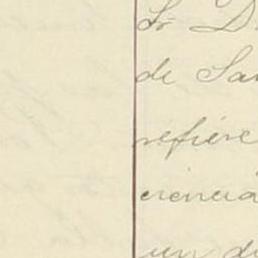 Sr D
de San
refiere
ciencia
un d